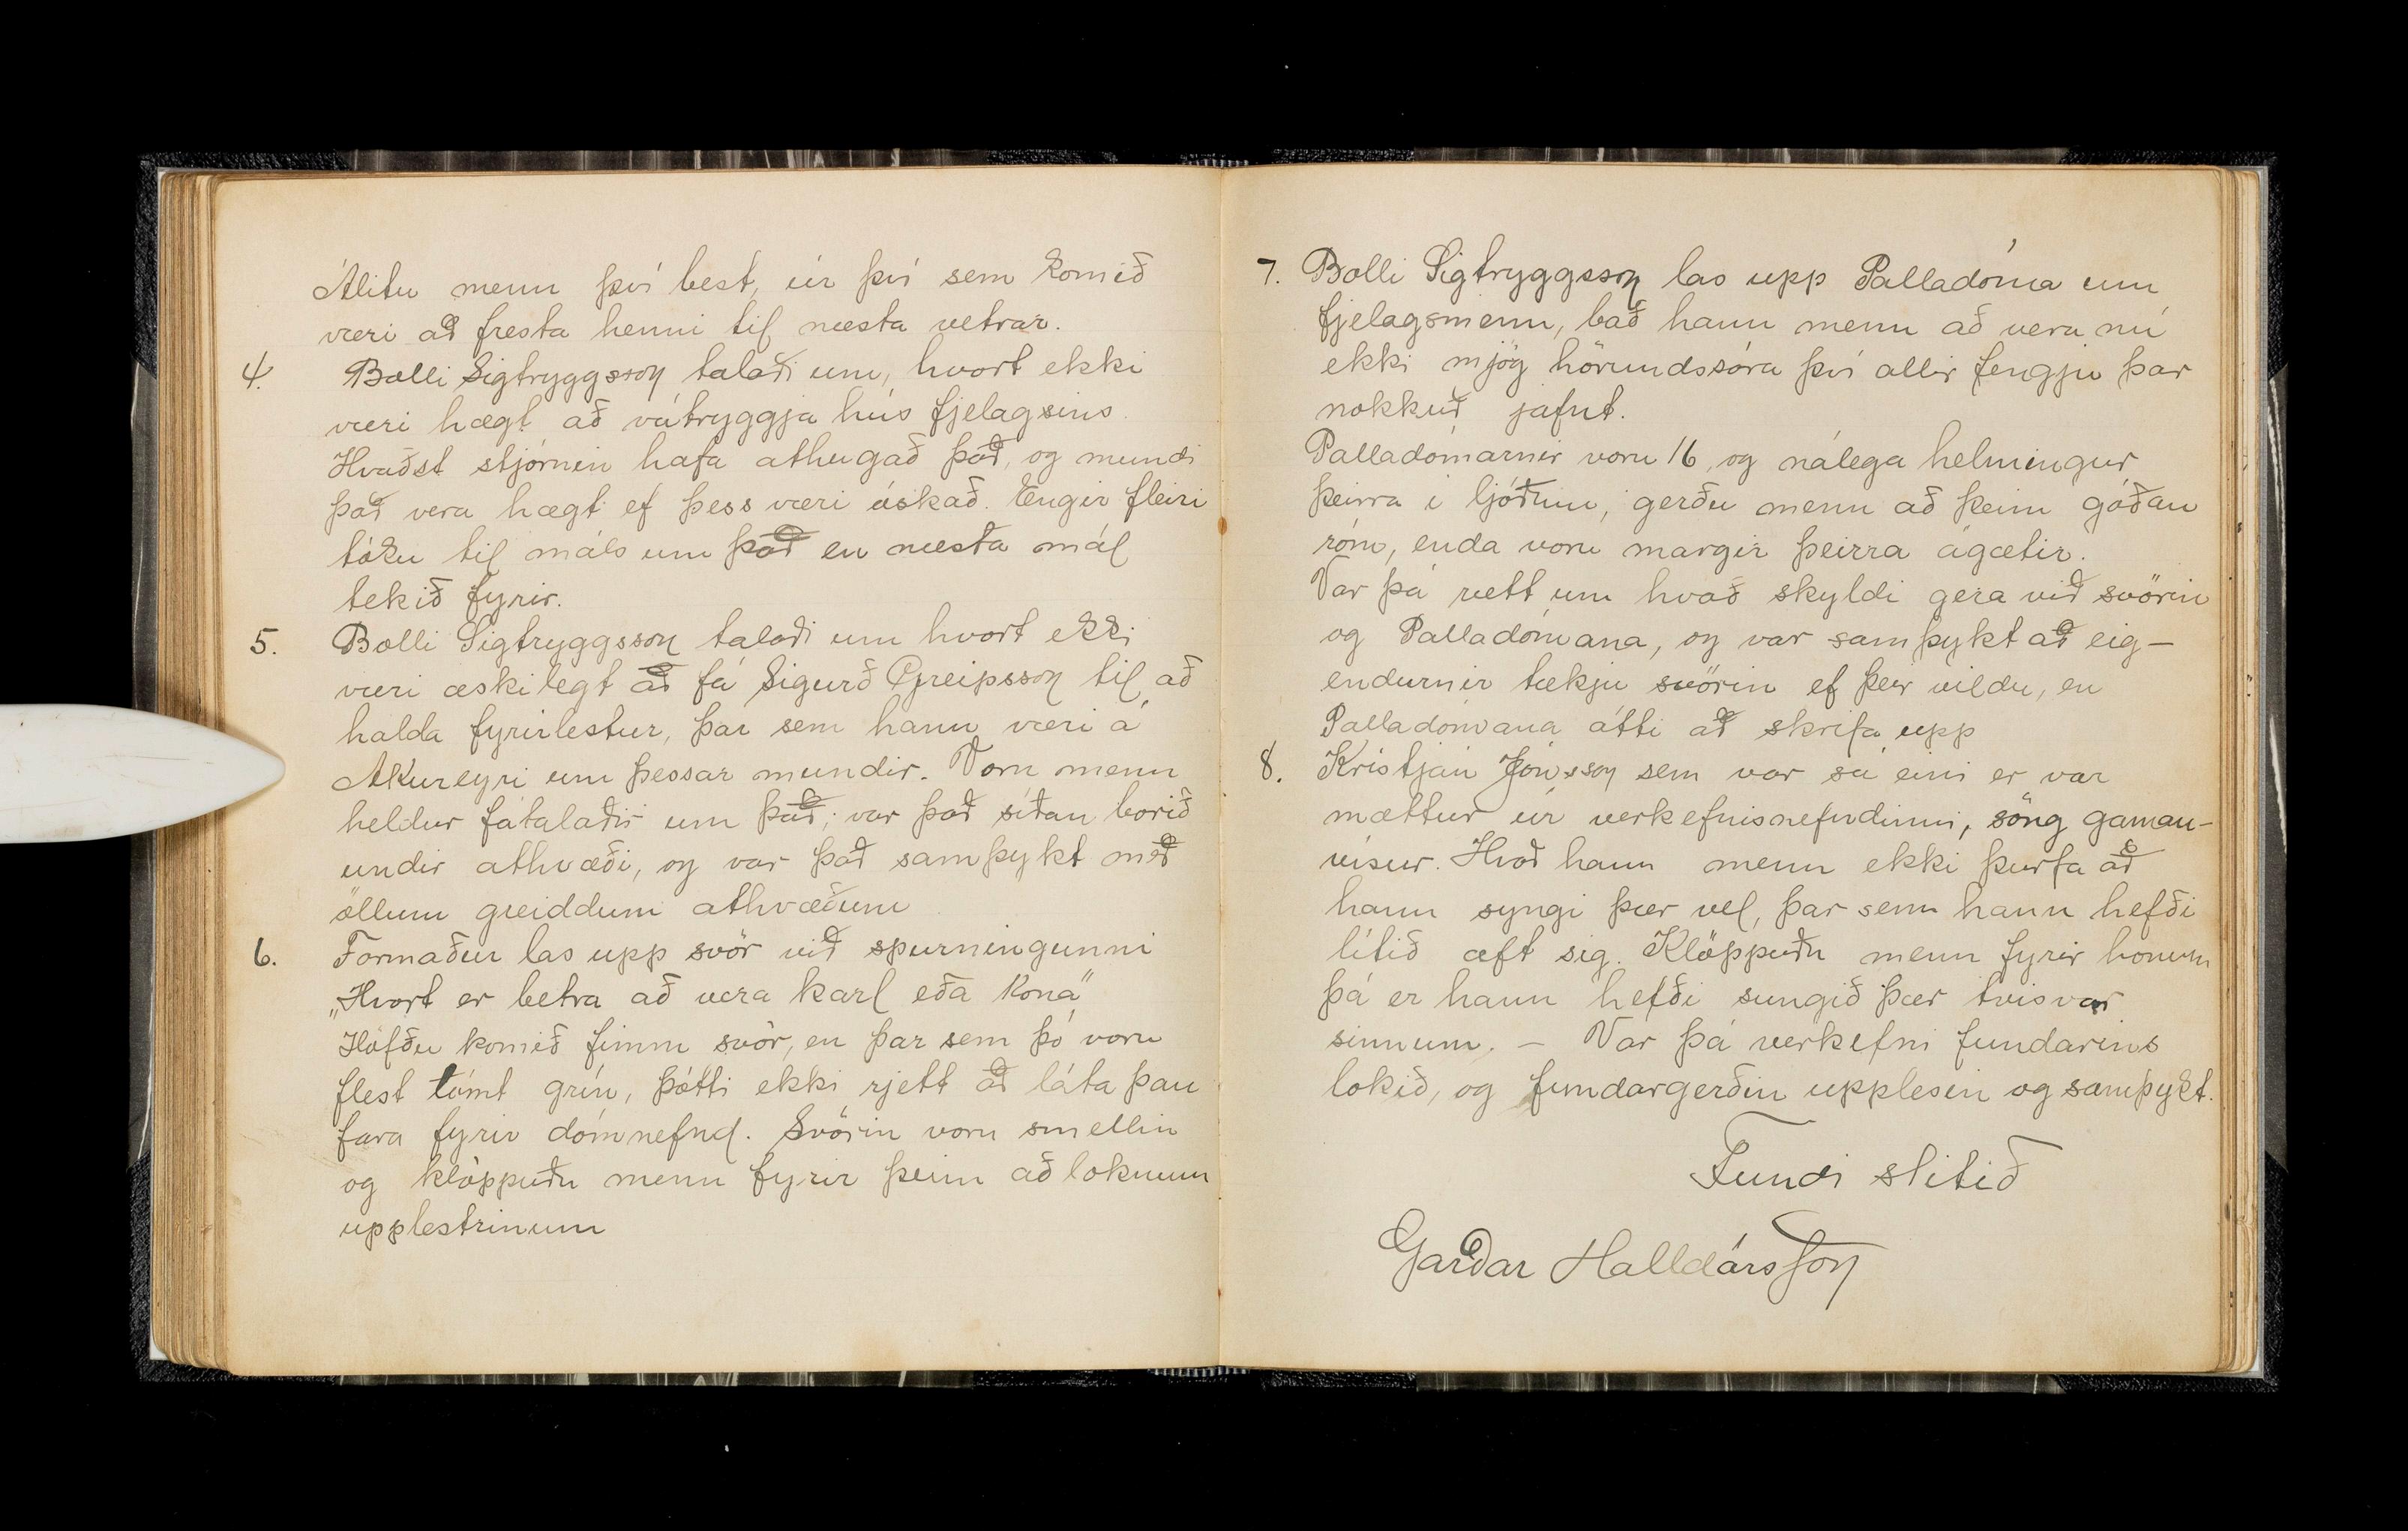 Álitu menn því best, úr því sem komið
væri að fresta henni til næsta vetrar.
4. Bolli Sigtryggsson talaði um, hvort ekki
væri hægt að vátryggja hús fjelagsins.
Hvaðst stjórnin hafa athugað það, og mundi
það vera hægt ef þess væri óskað. Engir fleiri
tóku til máls um það en næsta mál
tekið fyrir.
5. Bolli Sigtryggsson talaði um hvort ekki
væri æskilegt að fá Sigurð Greipsson til að
halda fyrirlestur, þar sem hann væri á
Akureyri um þessar mundir. Voru menn
heldur fátalaðir um það; var það síðan borið
undir athvæði, og var það samþykt með
öllum greiddum athvæðum
6. Formaður las upp svör við spurningunni
„Hvort er betra að vera karl eða kona"
Höfðu komið fimm svör, en þar sem þó voru
flest tómt grín, þótti ekki rjett að láta þau
fara fyrir dómnefnd. Svörin voru smellin
og klöppuðu menn fyrir þeim að loknum
upplestrinum
7. Bolli Sigtryggsson las upp Palladóma um
fjelagsmenn, bað hann menn að vera nú
ekki mjög hörundssára því allir fengju þar
nokkuð jafnt.
Palladómarnir voru 16, og nálega helmingur
þeirra í ljóðum, gerðu menn að þeim góðan
róm, enda voru margir þeirra ágætir.
Var þá rætt um hvað skyldi gera við svörin
og Palladómana, og var samþykt að eig-
endurnir tækju svörin ef þeir vildu, en
Palladómana átti að skrifa upp
8. Kristján Jónsson sem var sá eini er var
mættur úr verkefnisnefndinni, söng gaman-
vísur. Hvað hann menn ekki þurfa að
hann syngi þær vel, þar sem hann hefði
lítið æft sig. Klöppuðu menn fyrir honum
þá er hann hefði sungið þær tvisvar
sinnum. - Var þá verkefni fundarins
lokið, og fundargerðin upplesin og samþykt.
Fundi slitið
Garðar Halldórsson